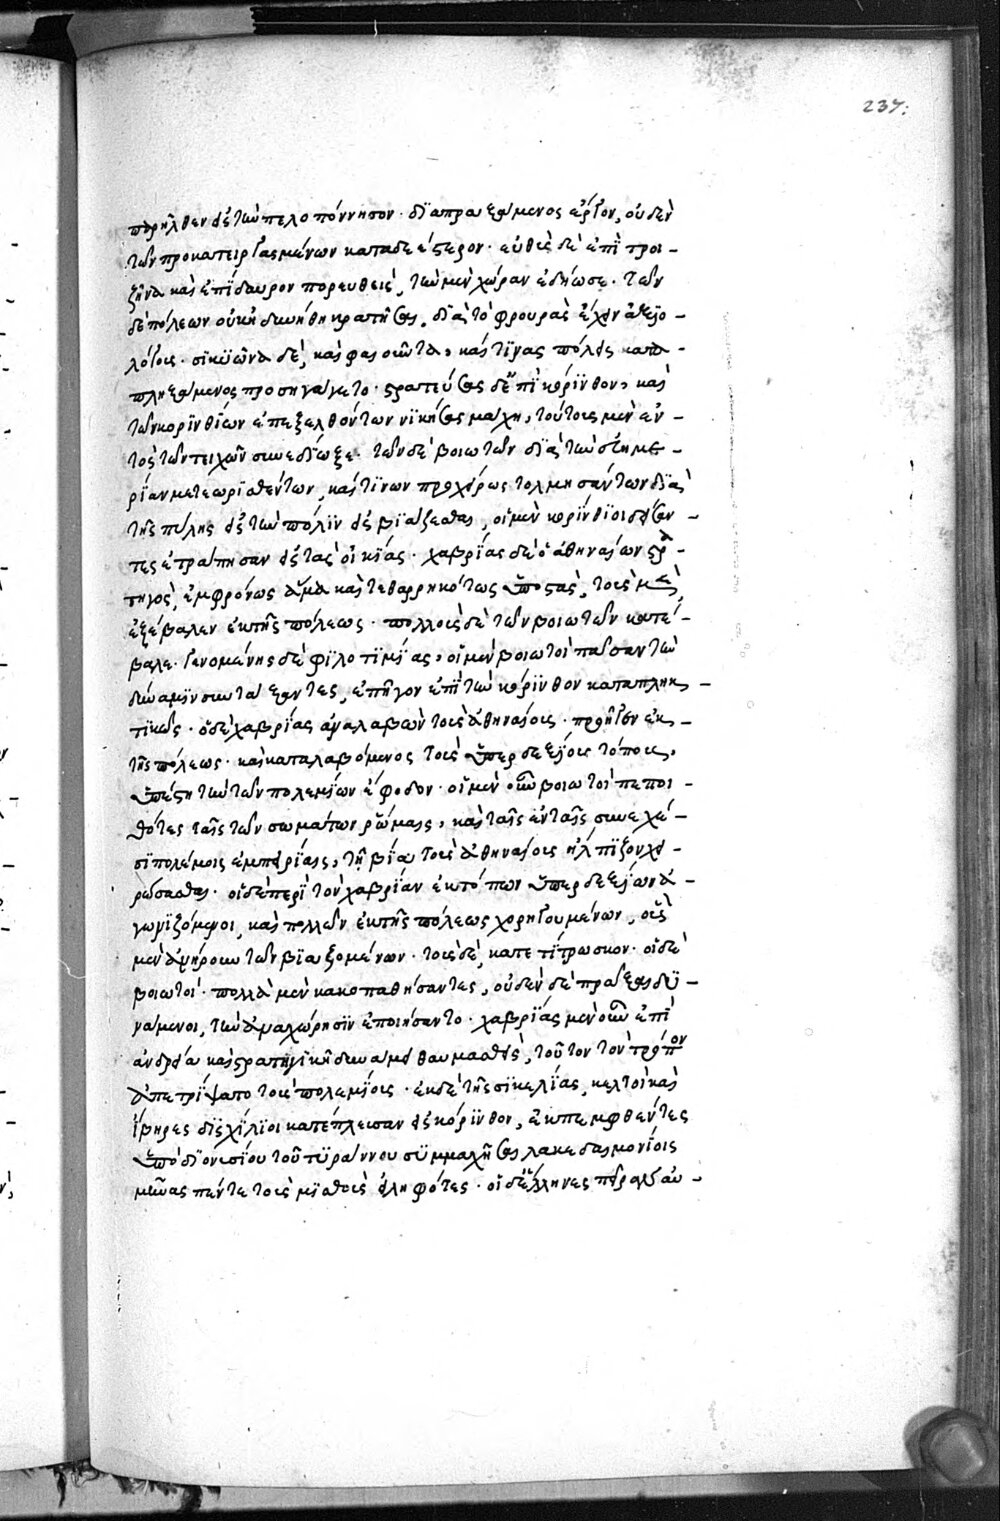 237:
παρῆλθεν εἰς τὴν πελοπόννησον. διαπραξάμενος ἔργον, οὐδὲν
τῶν προκατειργασμένων καταδεέστερον. εὐθὺς δὲ ἐπὶ τροι-
ζῆνα καὶ ἐπίδαυρον πορευθεὶς, τὴν μὲν χώραν ἐδήωσε. τῶν
δὲ πόλεων οὐκ ἠδυνήθη κρατῆσαι, διὰ τὸ φρουρὰς ἔχειν ἀξιο-
λόγους. σικυῶνα δὲ, καὶ φλιοῦντα, καί τινας πόλεις κατα-
πληξάμενος προσηγάγετο. στρατεύσας δ' ἐπὶ κόρινθον, καὶ
τῶν κορινθίων ἐπεξελθόντων νικήσας μάχη, τούτους μὲν ἐν-
τὸς τῶν τειχῶν συνεδίωξε. τῶν δὲ βοιωτῶν διὰ τὴν εὐημε-
ρίαν μετεωρισθέντων, καί τινων προχείρως τολμησάντων διὰ
τῆς πύλης εἰς τὴν πόλιν εἰσβιάζεσθαι, οἱ μὲν κορίνθιοι δείσαν-
τες ἐτράπησαν εἰς τὰς οἰκίας. χαβρίας δὲ ὁ ἀθηναίων στρα-
τηγὸς, ἐμφρόνως ἅμα καὶ τεθαρρηκότως ὑποστὰς, τοὺς μὲν
ἐξέβαλεν ἐκ τῆς πόλεως. πολλοὺς δὲ τῶν βοιωτῶν κατέ-
βαλε. γενομένης δὲ φιλοτιμίας, οἱ μὲν βοιωτοὶ πᾶσαν τὴν
δύναμιν συντάξαντες, ἐπῆγον ἐπὶ τὴν κόρινθον καταπληκ-
τικῶς. ὁ δὲ χαβρίας ἀναλαβὼν τοὺς ἀθηναίους. προῆγεν ἐκ
τῆς πόλεως. καὶ καταλαβόμενος τοὺς ὑπερδεξίους τόπους,
ὑπέστη τὴν τῶν πολεμίων ἔφοδον. οἱ μὲν οὖν βοιωτοὶ πεποι-
θότες ταῖς τῶν σωμάτων ῥώμαις, καὶ ταῖς ἐν ταῖς συνεχέ-
σι πολέμοις ἐμπειρίαις, τῇ βία τοὺς ἀθηναίους ἤλπιζον χει-
ρώσασθαι. οἱ δὲ περὶ τὸν χαβρίαν ἐκ τόπων ὑπερδεξίων ἀ-
γωνιζόμενοι, καὶ πολλῶν ἐκ τῆς πόλεως χορηγουμένων, οὓς
μὲν ἀνήρουν τῶν βιαζομένων. τοὺς δὲ, κατετίτρωσκον. οἱ δὲ
βοιωτοὶ. πολλὰ μὲν κακοπαθήσαντες, οὐδὲν δὲ πρᾶξαι δυ-
νάμενοι, τὴν ἀναχώρησιν ἐποιήσαντο. χαβρίας μὲν οὖν ἐπὶ
ἀνδρεία καὶ στρατηγικῆ δυνάμει θαυμασθεὶς, τοῦτον τὸν τρόπον
ἀπετρίψατο τοὺς πολεμίους. ἐκ δὲ τῆς σικελίας, κελτοὶ καὶ
ἴβηρες δισχίλιοι κατέπλευσαν εἰς κόρινθον, ἐκπεμφθέντες
ὑπὸ διονυσίου τοῦ τυράννου συμμαχῆσαι λακεδαιμονίοις
μῆνας πέντε τοὺς μισθοὺς εἰληφότες. οἱ δ' ἕλληνες πεῖραν αὐ-